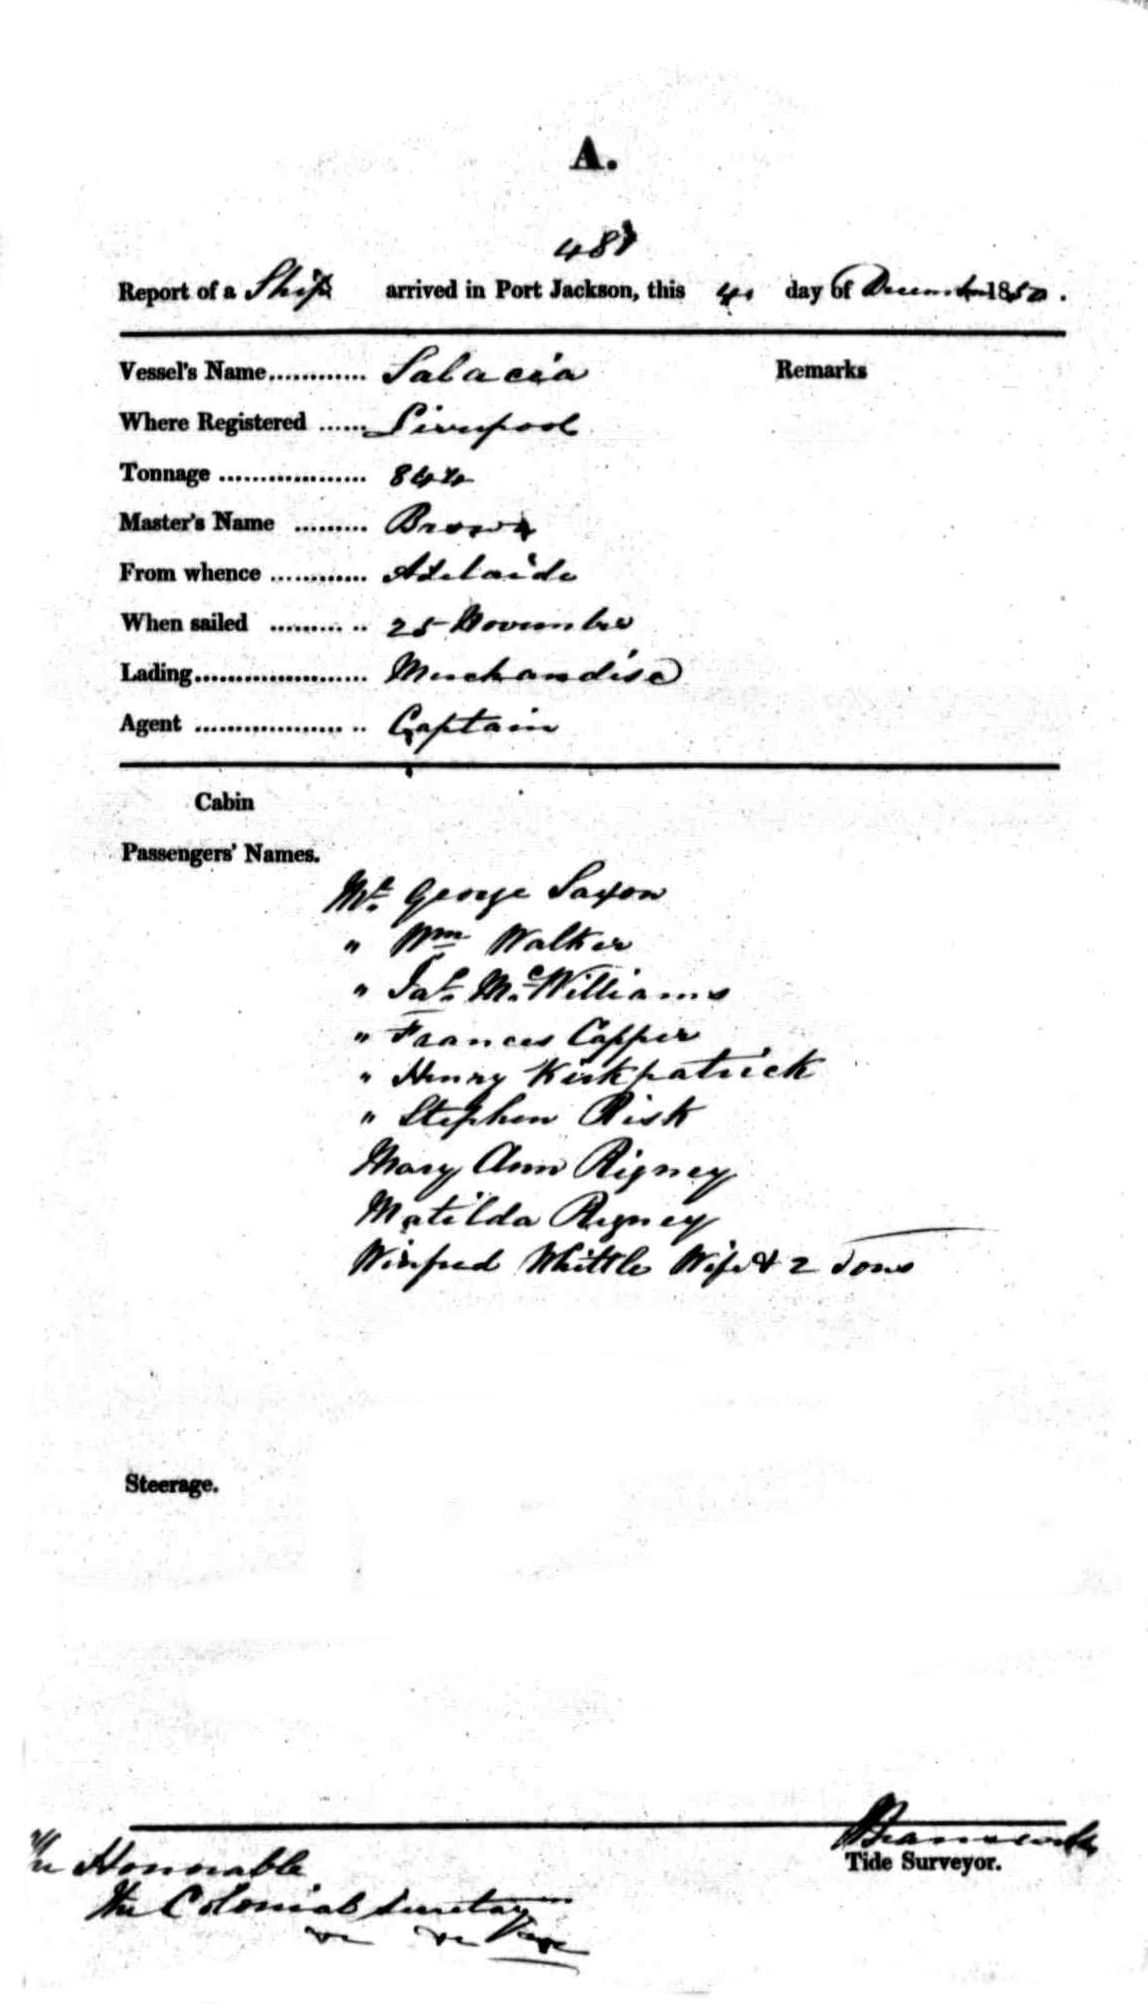 A.
Report of a Ship arrived in Port Jackson, this 4 day of December 1850.
Vessel's Name............ Salacia Remarks
Where Registered ...... Liverpool
Tonnage .................. 844
Master's Name ......... Brown
From whence ............ Adelaide
When sailed ......... .. 25 November
Lading..................... Merchandise
Agent .................. .. Captain
Cabin
Passengers' Names.
Mr. George Saxon
" Wm Walker
" Jas. McWilliams
" Frances Capper
" Henry Kirkpatrick
" Stephen Risk
Mary Ann Rigney
Matilda Rigney
Winfred Whittle Wife & 2 Sons
Steerage.
Tide Surveyor.
The Honorable
The Colonial Secretary